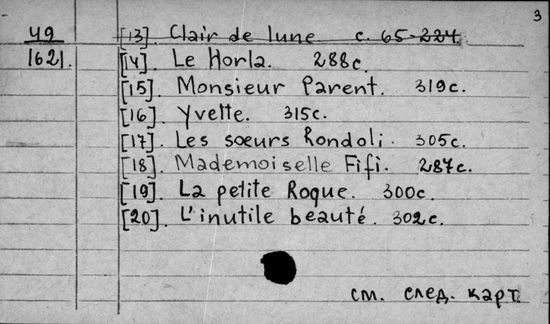 3
49
1621.
[13]. Clair de lune. с. 65-224
[14]. Le Horla. 288с.
[15]. Monsieur Parent. 319с.
[16]. Yvette. 315с.
[17]. Les sœurs Rondoli. 305с.
[18]. Mademoiselle Fifi. 287с.
[19]. La petite Roque. 300с.
[20]. L'inutile beauté. 302с.
см. след. карт.